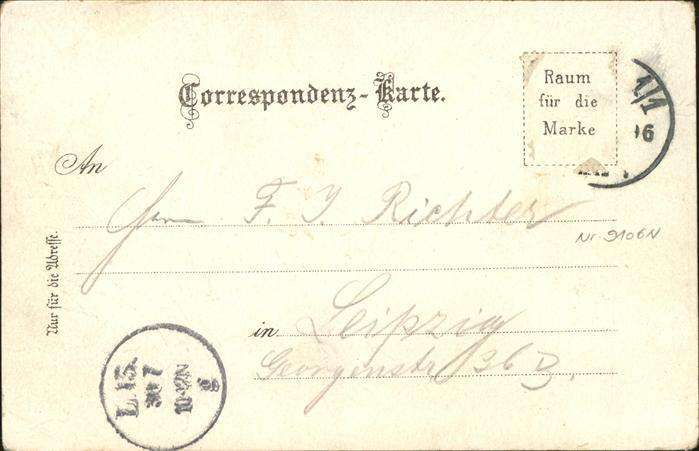 Correspondenz-Karte.
Raum
für die
Marke
1/1
06
An
Herrn F. J. Richter
Nr. 9106N
in Leipzig
Georgenstr.
Nur für die Adresse.
L.13.
30 7
g